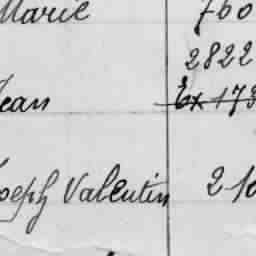 Marie 760
2822
Jean Ex 173
Joseph Valentin 210